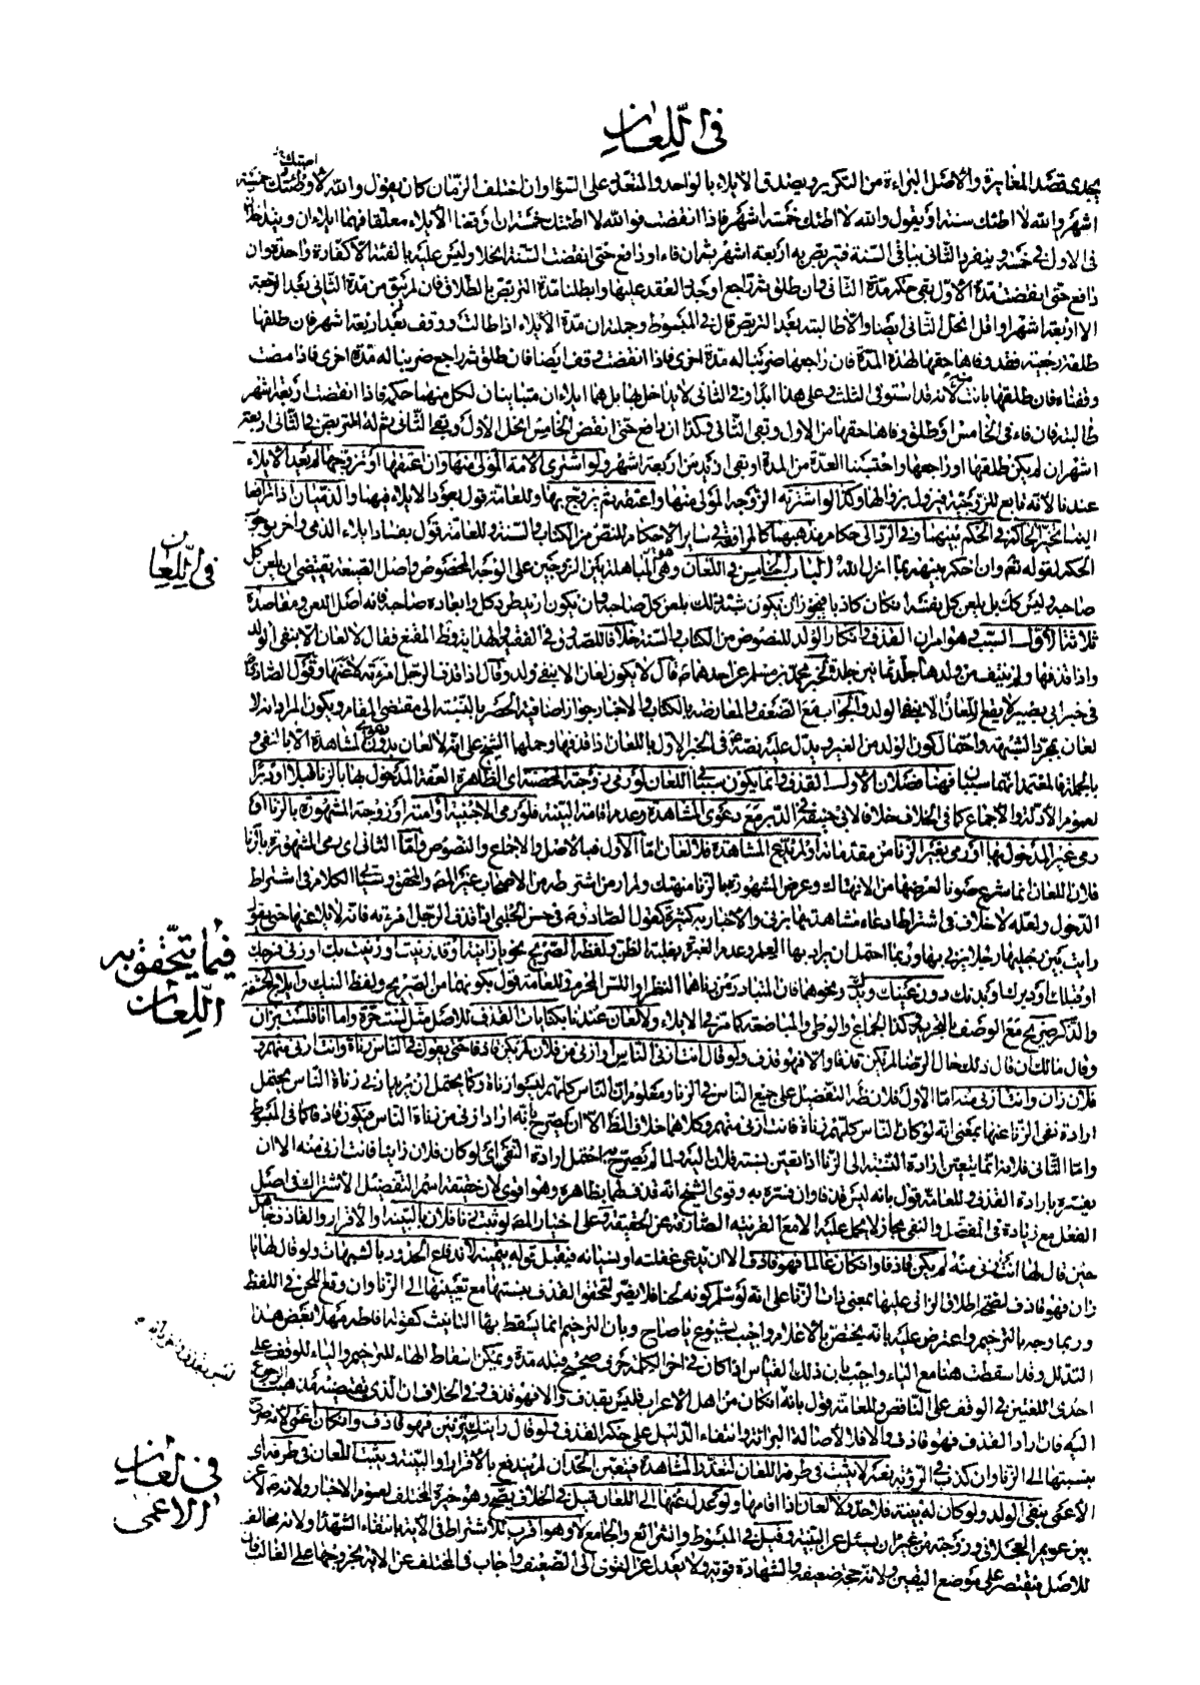 في اللعان
يجدي قصد المغايرة والاصل البراءة من التكرير ويصدق الايلاء بالواحد والمتعدد على السواء وان اختلف الزمان كان يقول والله لا وطئتك خمسة
اشهر والله لا اطئك سنة او يقول والله لا اطئك خمسة اشهر فاذا انقضت فوالله لا اطئتك خمسة ان اوقعنا الايلاء معلقا فهما ايلاءان ويتداخلان
في الاول في خمسة وينفرد الثاني بباقي السنة فيتربص به اربعة اشهر ثم ان فاء او دافع حتى انقضت السنة انحلا وليس عليه بالفئة الا كفارة واحدة وان
دافع حتى انقضت مدة الاول بقى حكم مدة الثاني وان طلق ثم راجع او جدد العقد عليها وابطلنا مدة التربص بالطلاق فان لم يبق من مدة الثاني بعد الرجعة
الا اربعة اشهر او اقل انحل الثاني ايضا والا طالبته بعد التربص قال في المبسوط وجملته ان مدة الايلاء اذا طالت ووقف بعد اربعة اشهر فان طلقها
طلقة رجعية فقد وفاها حقها لهذه المدة فان راجعها ضربنا له مدة اخرى فاذا انقضت وقف ايضا فان طلق ثم راجع ضربنا له مدة اخرى فاذا مضت
وقفناه فان طلقها بانت منه لانه قد استوفى الثلث وعلى هذا ابدا وفي الثاني لا تداخل هنا بل هما ايلاءان متباينان لكل منهما حكمه فاذا انقضت اربعة اشهر
طالبته فان فاء في الخامس او طلق وفاها حقها من الاول وبقى الثاني وكذا ان دافع حتى انقضى الخامس انحل الاول وبقى الثاني ثم له التربص في الثاني اربعة
اشهر ان لم يكن طلقها او راجعها واحتسبنا العدة من المدة او بقى ازيد من اربعة اشهر ولو اشترى الامة المولى منها وان عتقها او تزوجها لم يعد الايلاء
عندنا لانه تابع للزوجية فيزول بزوالها وكذا لو اشترته الزوجة المولى منها واعتقته ثم تزوج بها وللعامة قول بعود الايلاء فيهما والذميان اذا ترافعا
الينا تخير الحاكم في الحكم بينهما وفي الرد الى حكام مذهبهما كالمرافعة في ساير الاحكام للنص من الكتاب والسنة وللعامة قول بفساد ايلاء الذمي واخر بوجوب
الحكم لقوله تعم وان احكم بينهم بما انزل الله الباب الخامس في اللعان وهي المباهلة بين الزوجين على الوجه المخصوص واصل الصيغة يقتضي ان يلعن كل
صاحبه وليس كك بل يلعن كل نفسه ان كان كاذبا فيجوز ان يكون شبه ذلك بلعن كل صاحبه وان يكون اريد طرد كل وابعاده صاحبه فانه اصل اللعن ومقاصده
ثلاثة الاول السبب وهو امران القذف وانكار الولد للنصوص من الكتاب والسنة خلافا للصدوق في الفقيه والهداية وظ المقنع فقال لا لعان الا بنفي الولد
واذا قذفها ولم ينتف من ولدها جلد ثمانين جلدة لخبر محمد بن مسلم عن احدهما ع قال لا يكون لعان الا بنفي ولد وقال اذا قذف الرجل امرءته لاعنها وقول الصادق ع
في خبر ابي بصير لا يقع اللعان الا بنفي الولد والجواب مع الضعف والمعارضة بالكتاب والاخبار جواز اضافية الحصر بالنسبة الى مقتضى المقام ويكون المراد انه لا
لعان بمجرد الشبهة واحتمال كون الولد من الغير ويدل عليه نصه ع في الخبر الاول باللعان اذا قذفها وحملها الشيخ على انه لا لعان بدون دعوى المشاهدة الا بالنفي و
بالجملة فالمعتمد انهما سببان فهنا فصلان الاول القذف وانما يكون سببا في اللعان لو رمى زوجته المحصنة اي الظاهرة العفة المدخول بها بالزنا قبلا او دبرا
لعموم الادلة والاجماع كما في الخلاف خلافا لابي حنيفة في الدبر مع دعوى المشاهدة وعدم اقامة البينة فلو رمى الاجنبية او امته او زوجته المشهورة بالزنا او
رمى غير المدخول بها او رمى بغير الزنا من مقدماته او لم يدع المشاهدة فلا لعان اما الاول فبالاصل والاجماع والنصوص واما الثاني اي رمى المشهورة بالزنا
فلان اللعان انما شرع صونا لعرضها من الانتهاك وعرض المشهورة بالزنا منهتك ولم ار من اشترطه من الاصحاب غير المص والمحقق وسيجئ الكلام في اشتراط
الدخول ولعله لا خلاف في اشتراط ادعاء مشاهدته لها تزني والاخبار به كثيرة كقول الصادق ع في حسن الحلبي اذا قذف الرجل امرءته فانه لا يلاعنها حتى يقول
رايت بين رجليها رجلا يزني بها وربما احتمل ان يراد بها العلم وعدم العبرة بغلبة الظن ولفظه الصريح نحو يا زانية او قد زنيت او زنيت بك او زنى فرجك
او قبلك او دبرك او بدنك دون عينك ويدك ونحوهما فان المتبادر من زناهما النظر او اللمس المحرم وللعامة قول بكونهما من الصريح ولفظ النيك وايلاج الحشفة
والذكر صريح مع الوصف بالتحريم وكذا الجماع والوطى والمباضعة كما مر في الايلاء ولا لعان عندنا بكنايات القذف للاصل مثل لست حرة واما انا فلست بزان
وقال مالك ان قال ذلك حال الرضا لم يكن قذفا والا فهو قذف ولو قال انت ازنى الناس او ازنى من فلان لم يكن قاذفا حتى يقول في الناس زناة وانت ازنى منهم و
فلان زان وانت ازنى منه اما الاول فلان ظ التفضيل على جميع الناس في الزنا ومعلوم ان الناس كلهم ليسوا زناة وكما يحتمل ان يريد ازنى زناة الناس يحتمل
ارادة نفي الزنا عنها بمعنى انه لو كان الناس كلهم زناة فانت ازنى منهم وكلاهما خلاف الظ الا ان يصرح بانه اراد ازنى من زناة الناس فيكون قاذفا كما في المبسوط
واما الثاني فلانه انما يتعين ارادة النسبة الى الزنا اذا تعين نسبة فلان اليه ولما لم يصرح به احتمل ارادة النفي اي لو كان فلان زانيا فانت ازنى منه الا ان
يفسره بارادة القذف وللعامة قول بانه ليس قذفا وان فسره به وقوى الشيخ انه قذف لهما بظاهره وهو اقوى لان حقيقة اسم التفضيل الاشتراك في اصل
الفعل مع زيادة في المفضل والنفي مجاز لا يحمل عليه الا مع القرينة الصارفة عن الحقيقة وعلى اختيار المص لو ثبت زنا فلان بالبينة او الاقرار والقاذف جاهل
حين قال لها انت ازنى منه لم يكن قاذفا وان كان عالما فهو قاذف الا ان يدعي غفلته او نسيانه فيقبل قوله بيمينه لاندفاع الحدود بالشبهات ولو قال لها يا
زان فهو قاذف لصحة اطلاق الزاني عليها بمعنى ذات الزنا على انه لو سلم كونه لحنا فلا يضر لتحقق القذف بنسبتها مع تعيينها الى الزنا وان وقع اللحن في اللفظ
وربما وجه بالترخيم واعترض عليه بانه يختص بالاعلام واجيب بشيوع يا صاح وبان الترخيم انما يسقط بها التانيث كقوله افاطم مهلا بعض هذا
التدلل وقد اسقطت هنا مع الياء واجيب بان ذلك القياس اذا كان في اخر الكلمة حرف صحيح وقبله مدة ويمكن اسقاط الهاء للترخيم والياء للوقف على
احدى اللغتين في الوقف على الناقص وللعامة قول بانه ان كان من اهل الاعراب فليس بقذف والا فهو قذف وفي الخلاف ان الذي يقتضيه مذهبنا الرجوع
اليه فان اراد القذف فهو قاذف والا فلا لاصالة البرائة وانتفاء الدليل على حكم القذف ولو قال رايتك تزنين فهو قاذف وان كان اعمى لانه صرح
بنسبتها الى الزنا وان كذب في الرؤية نعم لا يثبت في طرفه اللعان لتعذر المشاهدة فيتعين الحد ان لم يندفع بالاقرار او البينة ويثبت اللعان في طرفه اي
الاعمى بنفي الولد ولو كان له بينة فلا حد ولا لعان اذا اقامها ولو عدل عنها الى اللعان قيل في الخلاف يصح وهو خيرة المختلف لعموم الاخبار ولانه ص لاعن
بين عويمر العجلاني وزوجته من غير ان يسئل عن البينة وقيل في المبسوط والشرائع والجامع لا وهو اقرب للاشتراط في الاية بانتفاء الشهداء ولانه مخالف
للاصل فيقتصر على موضع اليقين ولانه حجة ضعيفة والشهادة قوية ولا يعدل عن القوى الى الضعيف واجاب في المختلف عن الاية بخروجها على الغالب فان
في اللعان
فيما يتحقق به
اللعان
في لعان
الاعمى